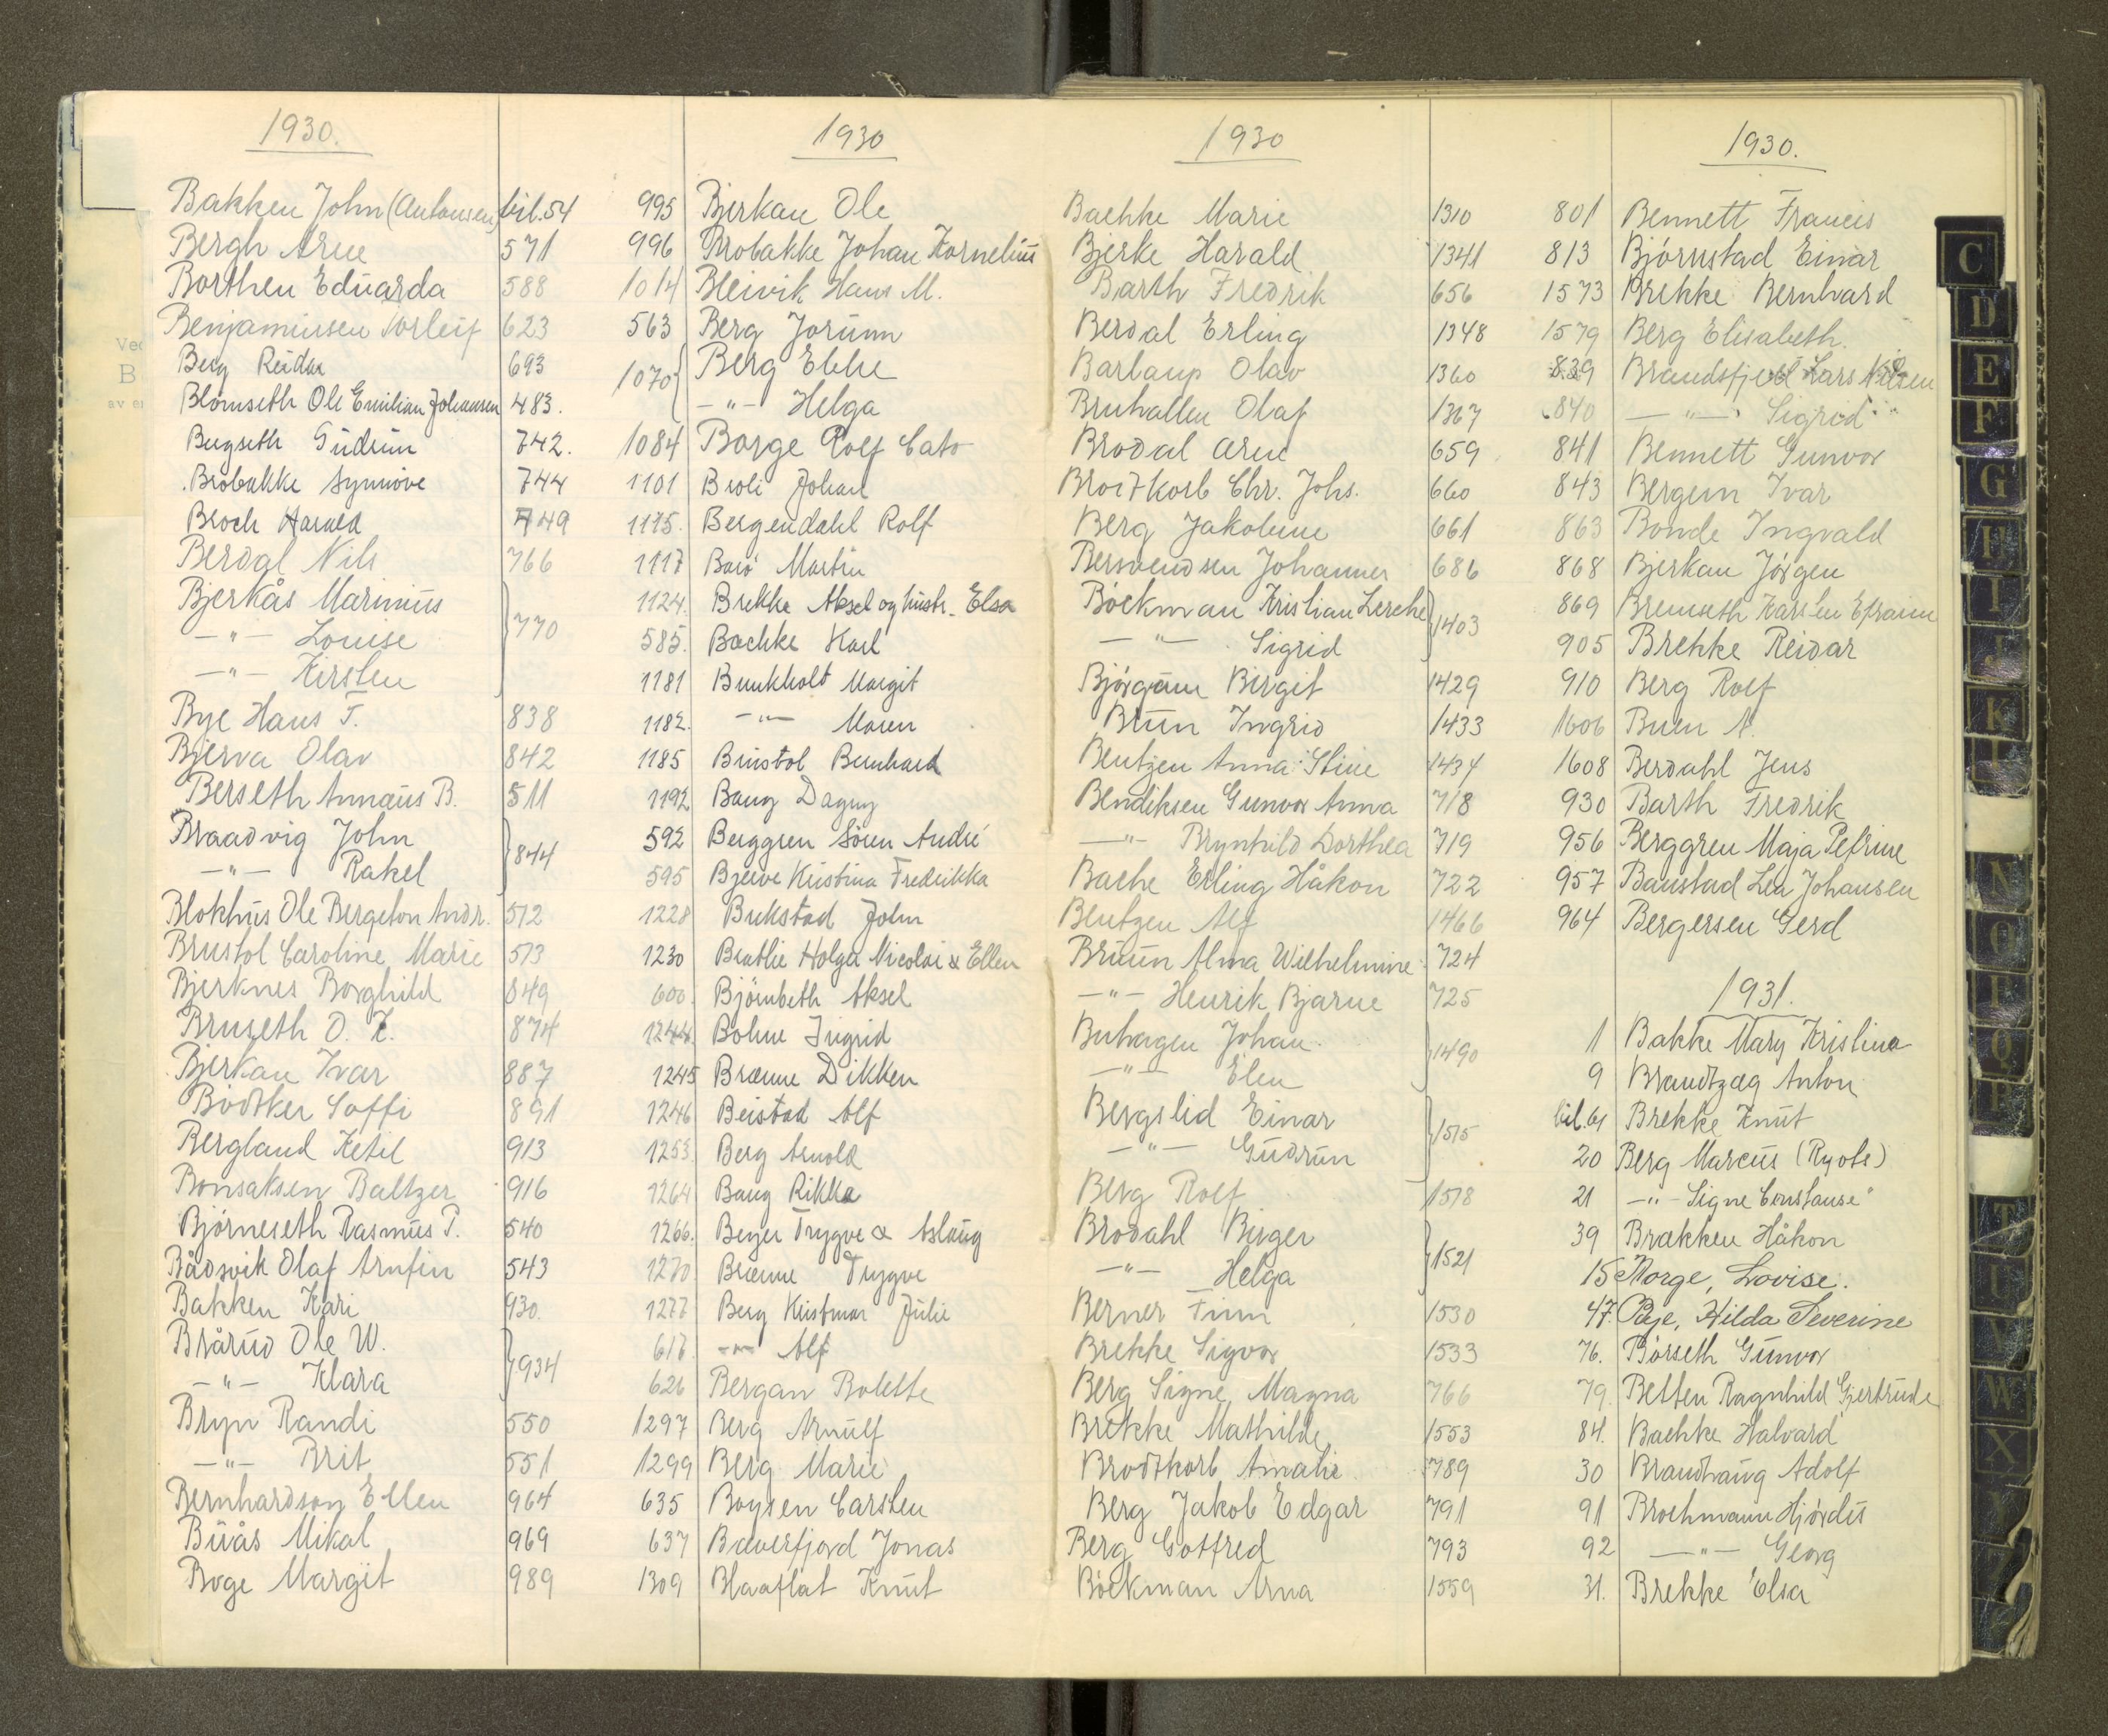 1930.
Bakken John (Antonsen) bil. 54
Bergh Arne 571
Borthen Edvarda 588
Benjaminsen Torleif 623
Berg Reidar 693
Blomseth Ole Emilian Johansen 483.
Bugseth Gudrun 742.
Brobakke Synnøve 744
Broch Harald 749
Berdal Nils 766
Bjerkås Marinius
—"— Louise 770
—"— Kirsten
Bye Hans T. 838
Bjerva Olav 842
Berseth Annæus B. 511
Braadvig John
—"— Rakel 844
Blokhus Ole Bergeton Andr. 512
Brustol Caroline Marie 513
Bjerknes Borghild 849
Bruseth O. K. 874
Bjerkan Ivar 887
Bödtker Soffi 891
Bergland Ketil 913
Bonsaksen Baltzer 916
Björneseth Rasmus P. 540
Bådsvik Olaf Arnfin 543
Bakken Kari 930.
Brårud Ole W.
—"— Klara 934
Bryn Randi 550
—"— Brit 551
Bernhardson Ellen 964
Buås Mikal 969
Boge Margit 989
1930
995 Bjerkan Ole
996 Brobakke Johan Kornelius
1014 Bleivik Hans M.
563 Berg Jorunn
1070 Berg Ebbe
—"— Helga
1084 Borge Rolf Cato
1101 Broli Johan
1115. Bergendahl Rolf
1117 Boiö Martin
1124. Brekke Aksel og hustr. Elsa
585. Bachke Karl
1181 Bunkholt Margit
1182. —"— Maren
1185 Brustol Bernhard
1192 Baug Dagny
592 Berggren Sören André
595 Bjerve Kristina Fredrikka
1228 Bukstad John
1230 Brathe Holger Nicolai & Ellen
600. Björnbeth Aksel
1244. Bohne Ingrid
1245 Brænne Dikken
1246 Beistad Alf
1253. Berg Arnold
1264 Baug Rikka
1266. Beyer Trygve & Aslaug
1270 Brænne Trygve
1277 Berg Kristmar Julie
617. —"— Alf
626 Bergan Bolette
1297 Berg Arnulf
1299 Berg Marie
635 Boysen Carsten
637 Baverfjord Jonas
1309 Blaaflat Knut
1930
Bachke Marie 1310
Bjerke Harald 1341
Barth Fredrik 656
Berdal Erling 1348
Barlaup Olav 1360
Bruhallen Olaf 1367
Brodal Arne 659
Brodtkorb Chr. Johs. 660
Berg Jakobine 661
Bersvendsen Johannes 686
Böckman Kristian Lerche
—"— Sigrid 1403
Björgum Birgit 1429
Bruun Ingrid 1433
Bentzen Anna Stine 1434
Bendiksen Gunvor Anna 718
—"— Brynhild Dorthea 719
Bache Erling Håkon 722
Bentzen Alf 1466
Bruun Alma Wilhelmine 724
—"— Henrik Bjarne 725
Buhagen Johan
—"— Elen 1490
Bergslid Einar
—"— Gudrun 1515
Berg Rolf 1518
Brodahl Birger
—"— Helga 1521
Berner Finn 1530
Brekke Sigvor 1533
Berg Signe Magna 766
Brekke Mathilde 1553
Brodtkorb Amalie 789
Berg Jakob Edgar 791
Berg Gotfred 793
Böckman Arna 1559
1930.
801 Bennett Francis
813 Björnstad Einar
1573 Brekke Bernhard
1579 Berg Elisabeth.
839 Brandsfjell Lars Nilsen
840 —"— Sigrid "
841 Bennett Gunvor
843 Bergem Ivar
863 Bonde Ingvald
868 Bjerkan Jörgen
869 Bremseth Karsten Efraim
905 Brekke Reidar
910 Berg Rolf
1606 Buen N.
1608 Berdahl Jens
930 Barth Fredrik
956 Berggren Maja Petrine
957 Banstad Lea Johansen
964 Bergersen Gerd
1931.
1 Bakke Mary Kristina
9 Brandtzæg Anton
bil. 61 Brekke Knut
20 Berg Marcus (Ryots)
21 —"— Signe Constanse "
39 Brækken Håkon
15 Borge, Lovise.
47. Bye, Hilda Severine
76. Börseth Gunvor
79. Betten Ragnhild Gjertrude
84. Bachke Halvard
30 Brandhaug Adolf
91 Brochmann Hjördis
92 —"— Georg
31. Brekke Elsa
C
D
E
F
G
H
I
J
K
L
N
O
P
Q
R
T
U
V
W
X
Y
Z